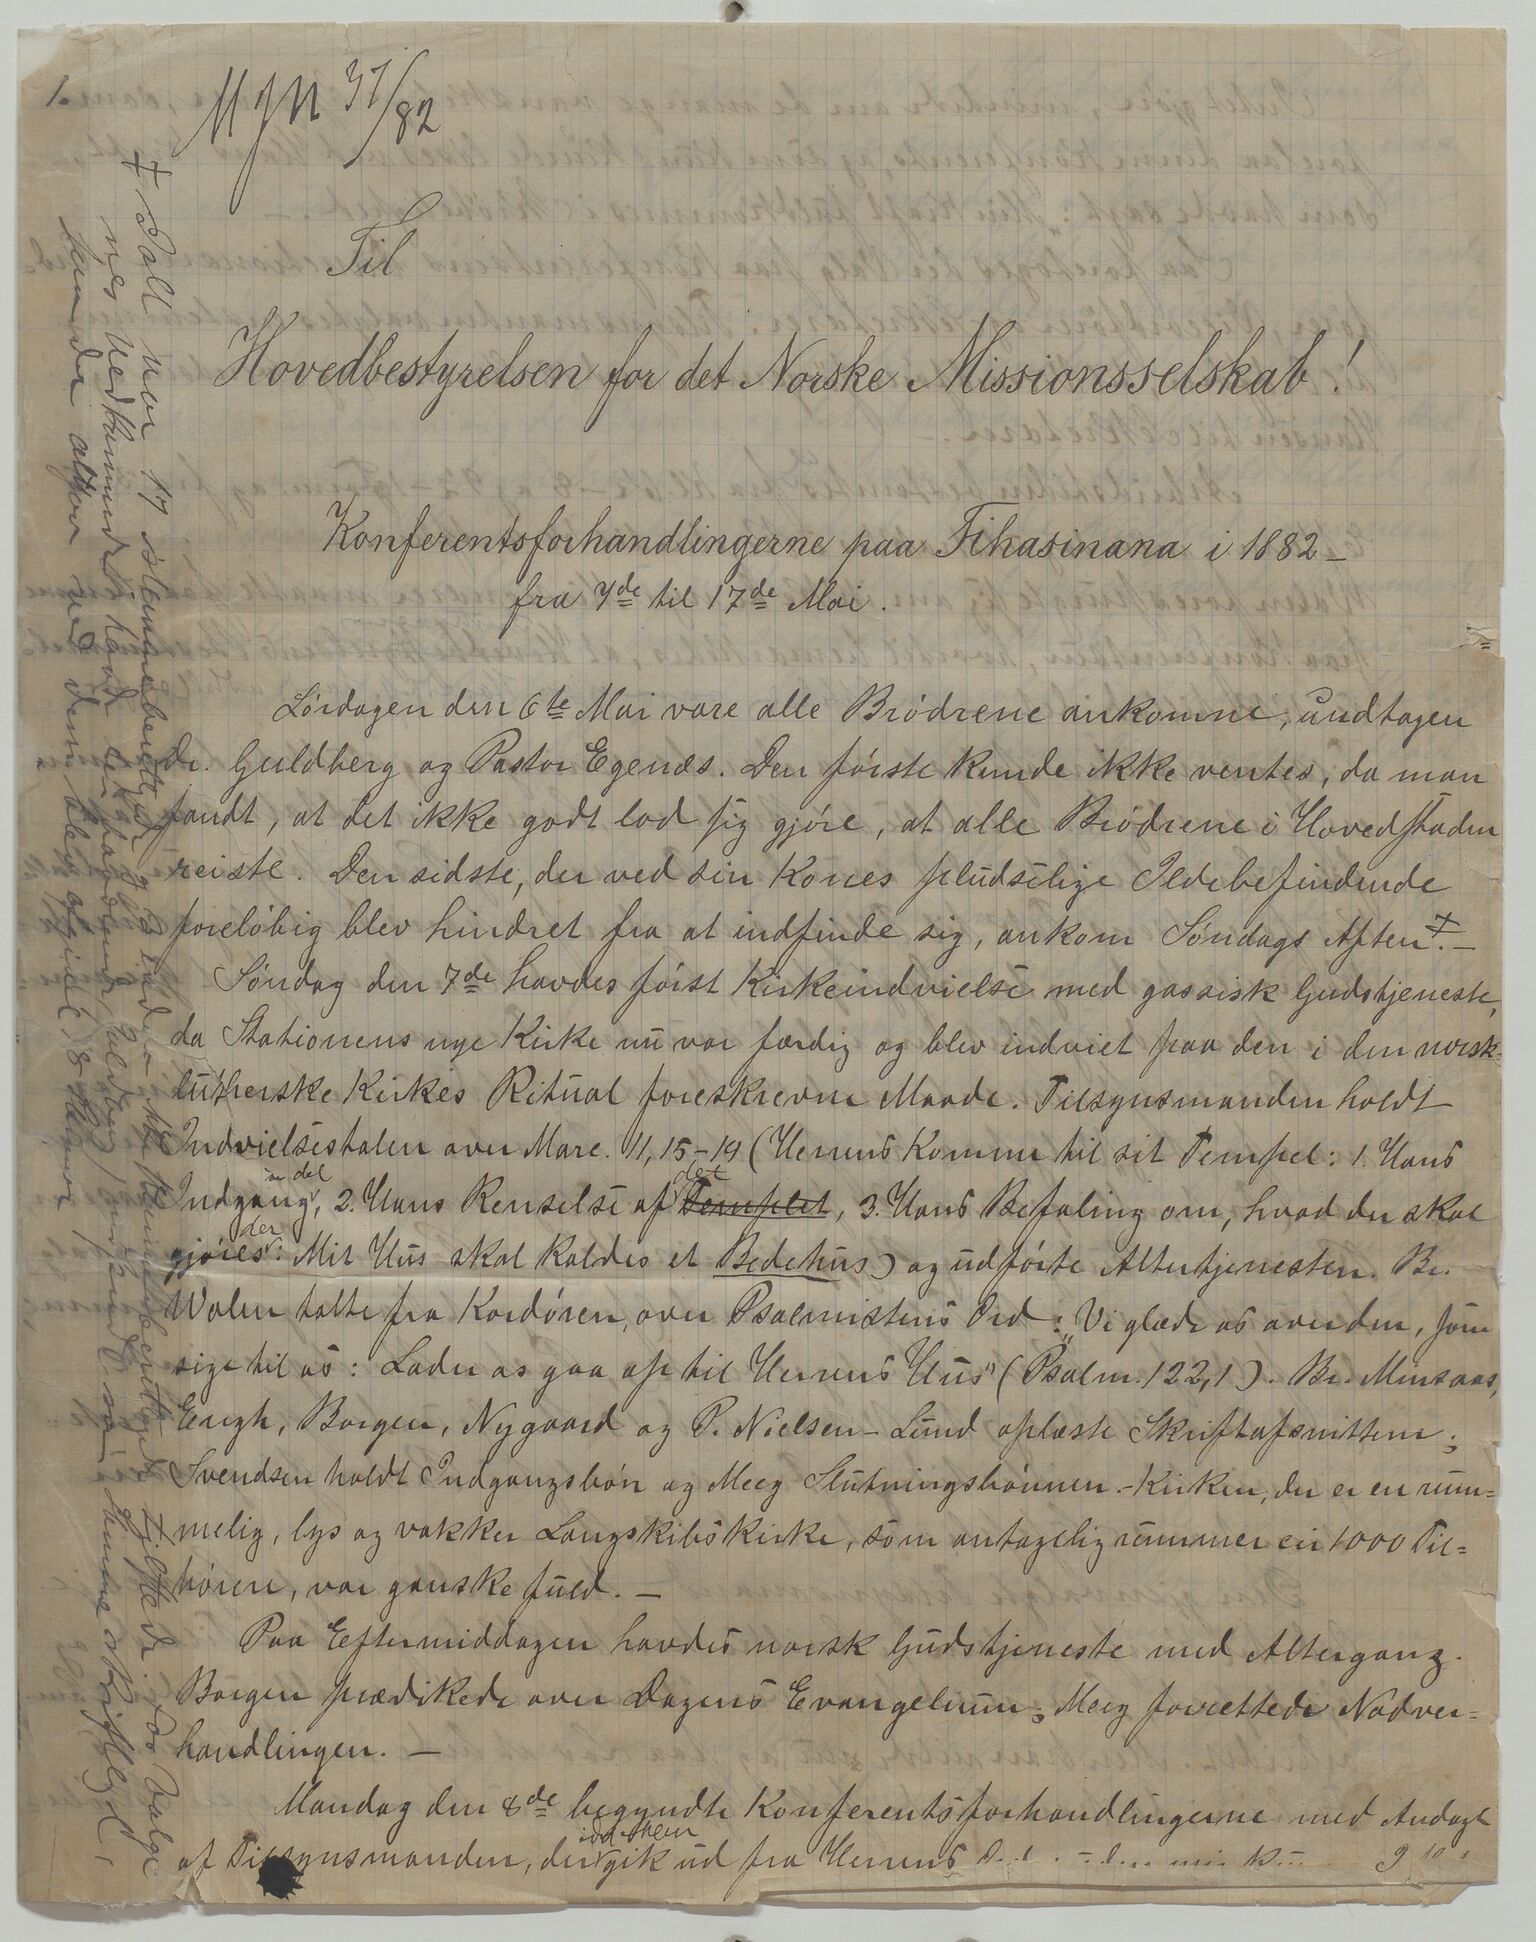 1.
M J N 37/82
Til
Hovedbestyrelsen for det Norske Missionsselskab!
Konferentsforhandlingerne paa Fihasinana i 1882 –
fra 7de til 17de Mai.
Lørdagen den 6te Mai vare alle Brødrene ankomne, undtagen
Dr. Guldberg og Pastor Egenæs. Den første kunde ikke ventes, da man
fandt, at det ikke godt lod sig gjøre, at alle Brødrene i Hovedstaden
reiste. Den sidste, der ved sin Kones pludselige Ildebefindende
foreløbig blev hindret fra at indfinde sig, ankom Søndags Aften ‡. –
Søndag den 7de havdes først Kirkeindvielse med gassisk Gudstjeneste,
da Stationens nye Kirke nu var færdig og blev indviet paa den i den norsk-
lutherske Kirkes Ritual foreskrevne Maade. Tilsynsmanden holdt
Indvielsestalen over Marc. 11, 15–19 (Herrens Komme til sit Tempel: 1. Hans
Indgang i det, 2. Hans Renselse af Templet det, 3. Hans Befaling om, hvad der skal
gjøres der: Mit Hus skal kaldes et Bedehus) og udførte Altertjenesten. Br.
Walen talte fra Kordøren, over Psalmistens Ord: "Vi glæde os over dem, som
sige til os: Lader os gaa op til Herrens Hus" (Psalm. 122,1). Br. Minsaas,
Engh, Borgen, Nygaard og P. Nielsen-Lund oplæste Skriftafsnittene;
Svendsen holdt Indgangsbøn og Meeg Slutningsbønnen. – Kirken, der er en rum=
melig, lys og vakker Langskibskirke, som antagelig rummer en 1000 Til=
hørere, var ganske fuld. –
Paa Eftermiddagen havdes norsk Gudstjeneste med Altergang.
Borgen prædikede over Dagens Evangelium; Meeg forrettede Nadver=
handlingen. –
Mandag den 8de begyndte Konferentsforhandlingerne med Andagt
af Tilsynsmanden, der gik ud fra Herrens
‡ Talt var 17 stemmeberettigede